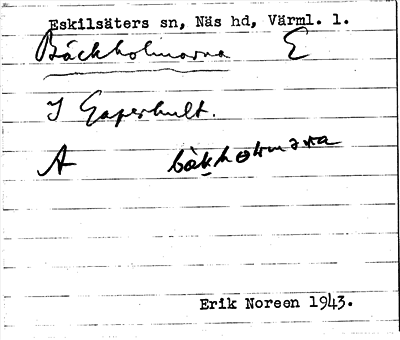 Eskilsäters sn, Näs hd, Värml. l.
Bäckholmarna E
I Gaperhult.
A bäkholmarna
Erik Noreen 1943.